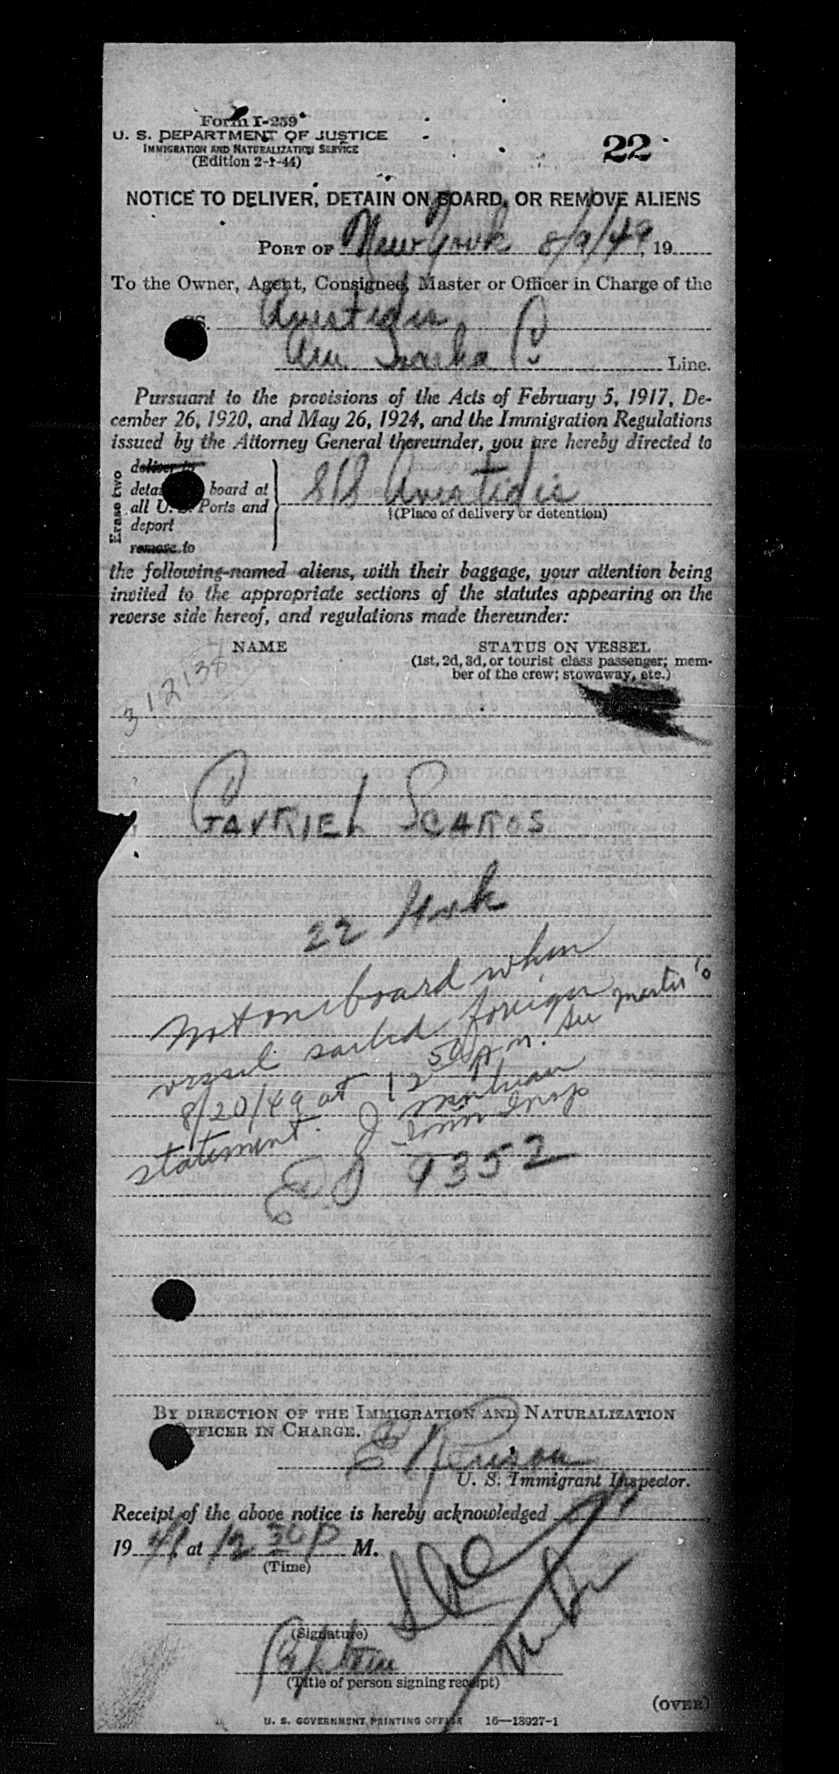 Form I-259
U. S. DEPARTMENT OF JUSTICE
IMMIGRATION AND NATURALIZATION SERVICE
(Edition 2-1-44)
22
NOTICE TO DELIVER, DETAIN ON BOARD, OR REMOVE ALIENS
PORT OF New York 8/9/49, 19
To the Owner, Agent, Consignee, Master or Officer in Charge of the
SS. Aristidis
Line.
Pursuant to the provisions of the Acts of February 5, 1917, De-
cember 26, 1920, and May 26, 1924, and the Immigration Regulations
issued by the Attorney General thereunder, you are hereby directed to
Erase two
deliver to
detain board at
all U. S. Ports and
deport
remove to
S/S Aristidis
(Place of delivery or detention)
the following-named aliens, with their baggage, your attention being
invited to the appropriate sections of the statutes appearing on the
reverse side hereof, and regulations made thereunder:
NAME
STATUS ON VESSEL
(1st, 2d, 3d, or tourist class passenger; mem-
ber of the crew; stowaway, etc.)
312138
GAVRIEL SCAROS
22 Grk
Not on board when
vessel sailed foreign
8/20/49 at 12 50 p.m. See master's
statement. J
Imm Insp
9352
BY DIRECTION OF THE IMMIGRATION AND NATURALIZATION
OFFICER IN CHARGE.
U. S. Immigrant Inspector.
Receipt of the above notice is hereby acknowledged
19 49 at 12 30 P M.
(Time)
(Signature)
Captain
(Title of person signing receipt)
(OVER)
U. S. GOVERNMENT PRINTING OFFICE 16—13927-1